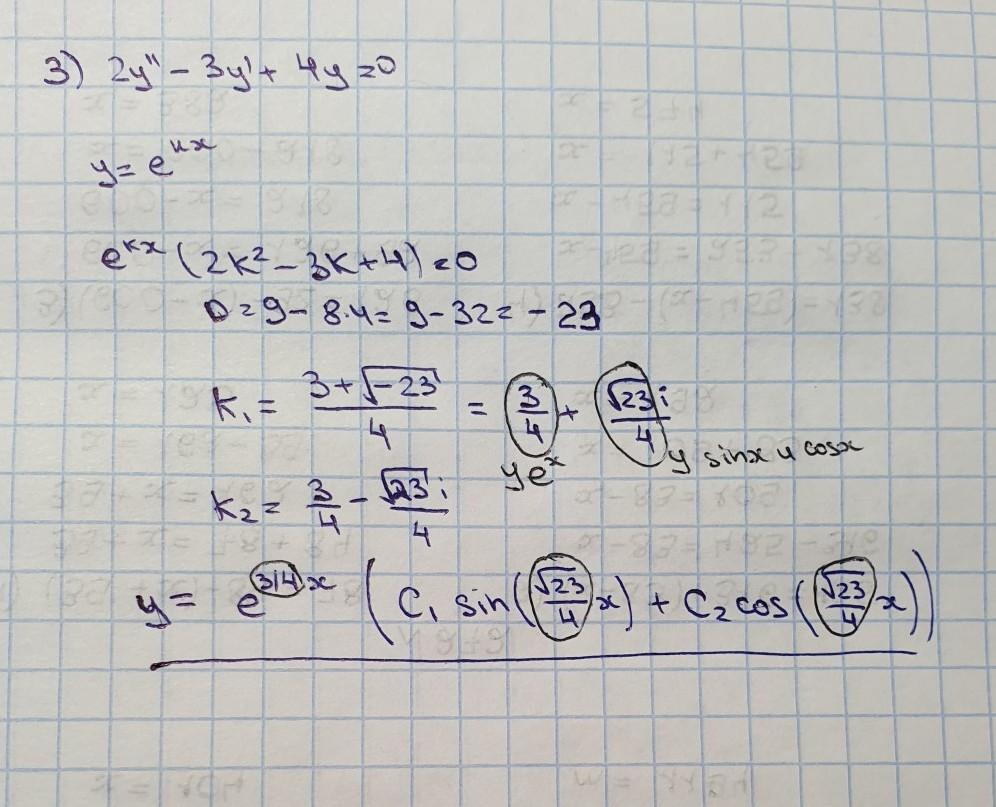 3) 2y'' - 3y' + 4y = 0
y = e^{kx}
e^{kx} (2k² - 3k + 4) = 0
D = 9 - 8·4 = 9 - 32 = - 23
k₁ = (3 + √-23)/4 = 3/4 + √23 i/4
у e^x у sinx и cosx
k₂ = 3/4 - √23 i/4
y = e^{3/4 x} (C₁ sin(√23/4 x) + C₂ cos(√23/4 x))